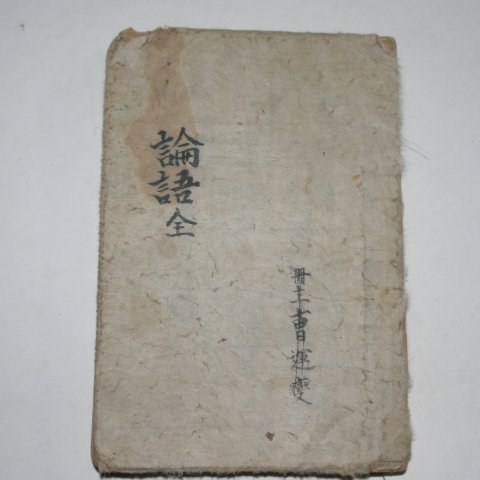 論語全
冊主曺運